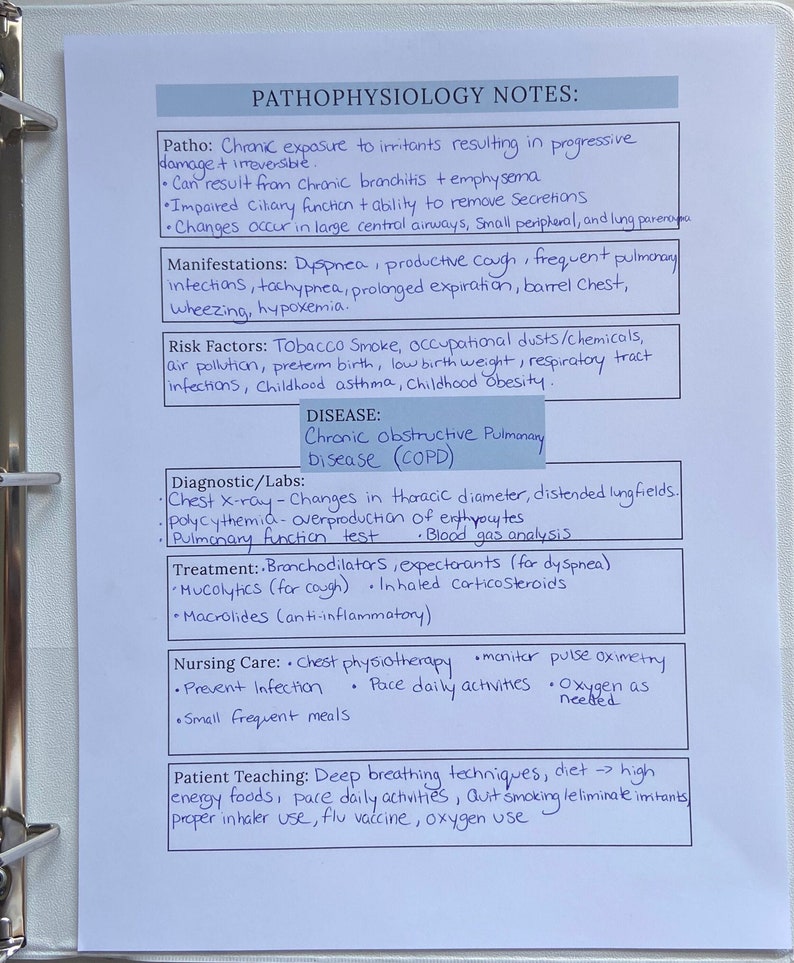 PATHOPHYSIOLOGY NOTES:
Patho: Chronic exposure to irritants resulting in progressive
damage + irreversible.
• Can result from chronic bronchitis + emphysema
• Impaired ciliary function + ability to remove secretions
• Changes occur in large central airways, small peripheral, and lung parenchyma
Manifestations: Dyspnea, productive cough, frequent pulmonary
infections, tachypnea, prolonged expiration, barrel chest,
wheezing, hypoxemia.
Risk Factors: Tobacco Smoke, occupational dusts/chemicals,
air pollution, preterm birth, low birth weight, respiratory tract
infections, childhood asthma, childhood obesity.
DISEASE:
Chronic obstructive Pulmonary
Disease (COPD)
Diagnostic/Labs:
• Chest X-ray - Changes in thoracic diameter, distended lung fields.
• polycythemia - overproduction of erthyocytes
• Pulmonary function test • Blood gas analysis
Treatment: • Bronchodilators, expectorants (for dyspnea)
• Mucolytics (for cough) • Inhaled corticosteroids
• Macrolides (anti-inflammatory)
Nursing Care: • Chest physiotherapy • monitor pulse oximetry
• Prevent Infection • Pace daily activities • Oxygen as
needed
• Small frequent meals
Patient Teaching: Deep breathing techniques, diet → high
energy foods, pace daily activities, Quit smoking/eliminate irritants,
proper inhaler use, flu vaccine, oxygen use